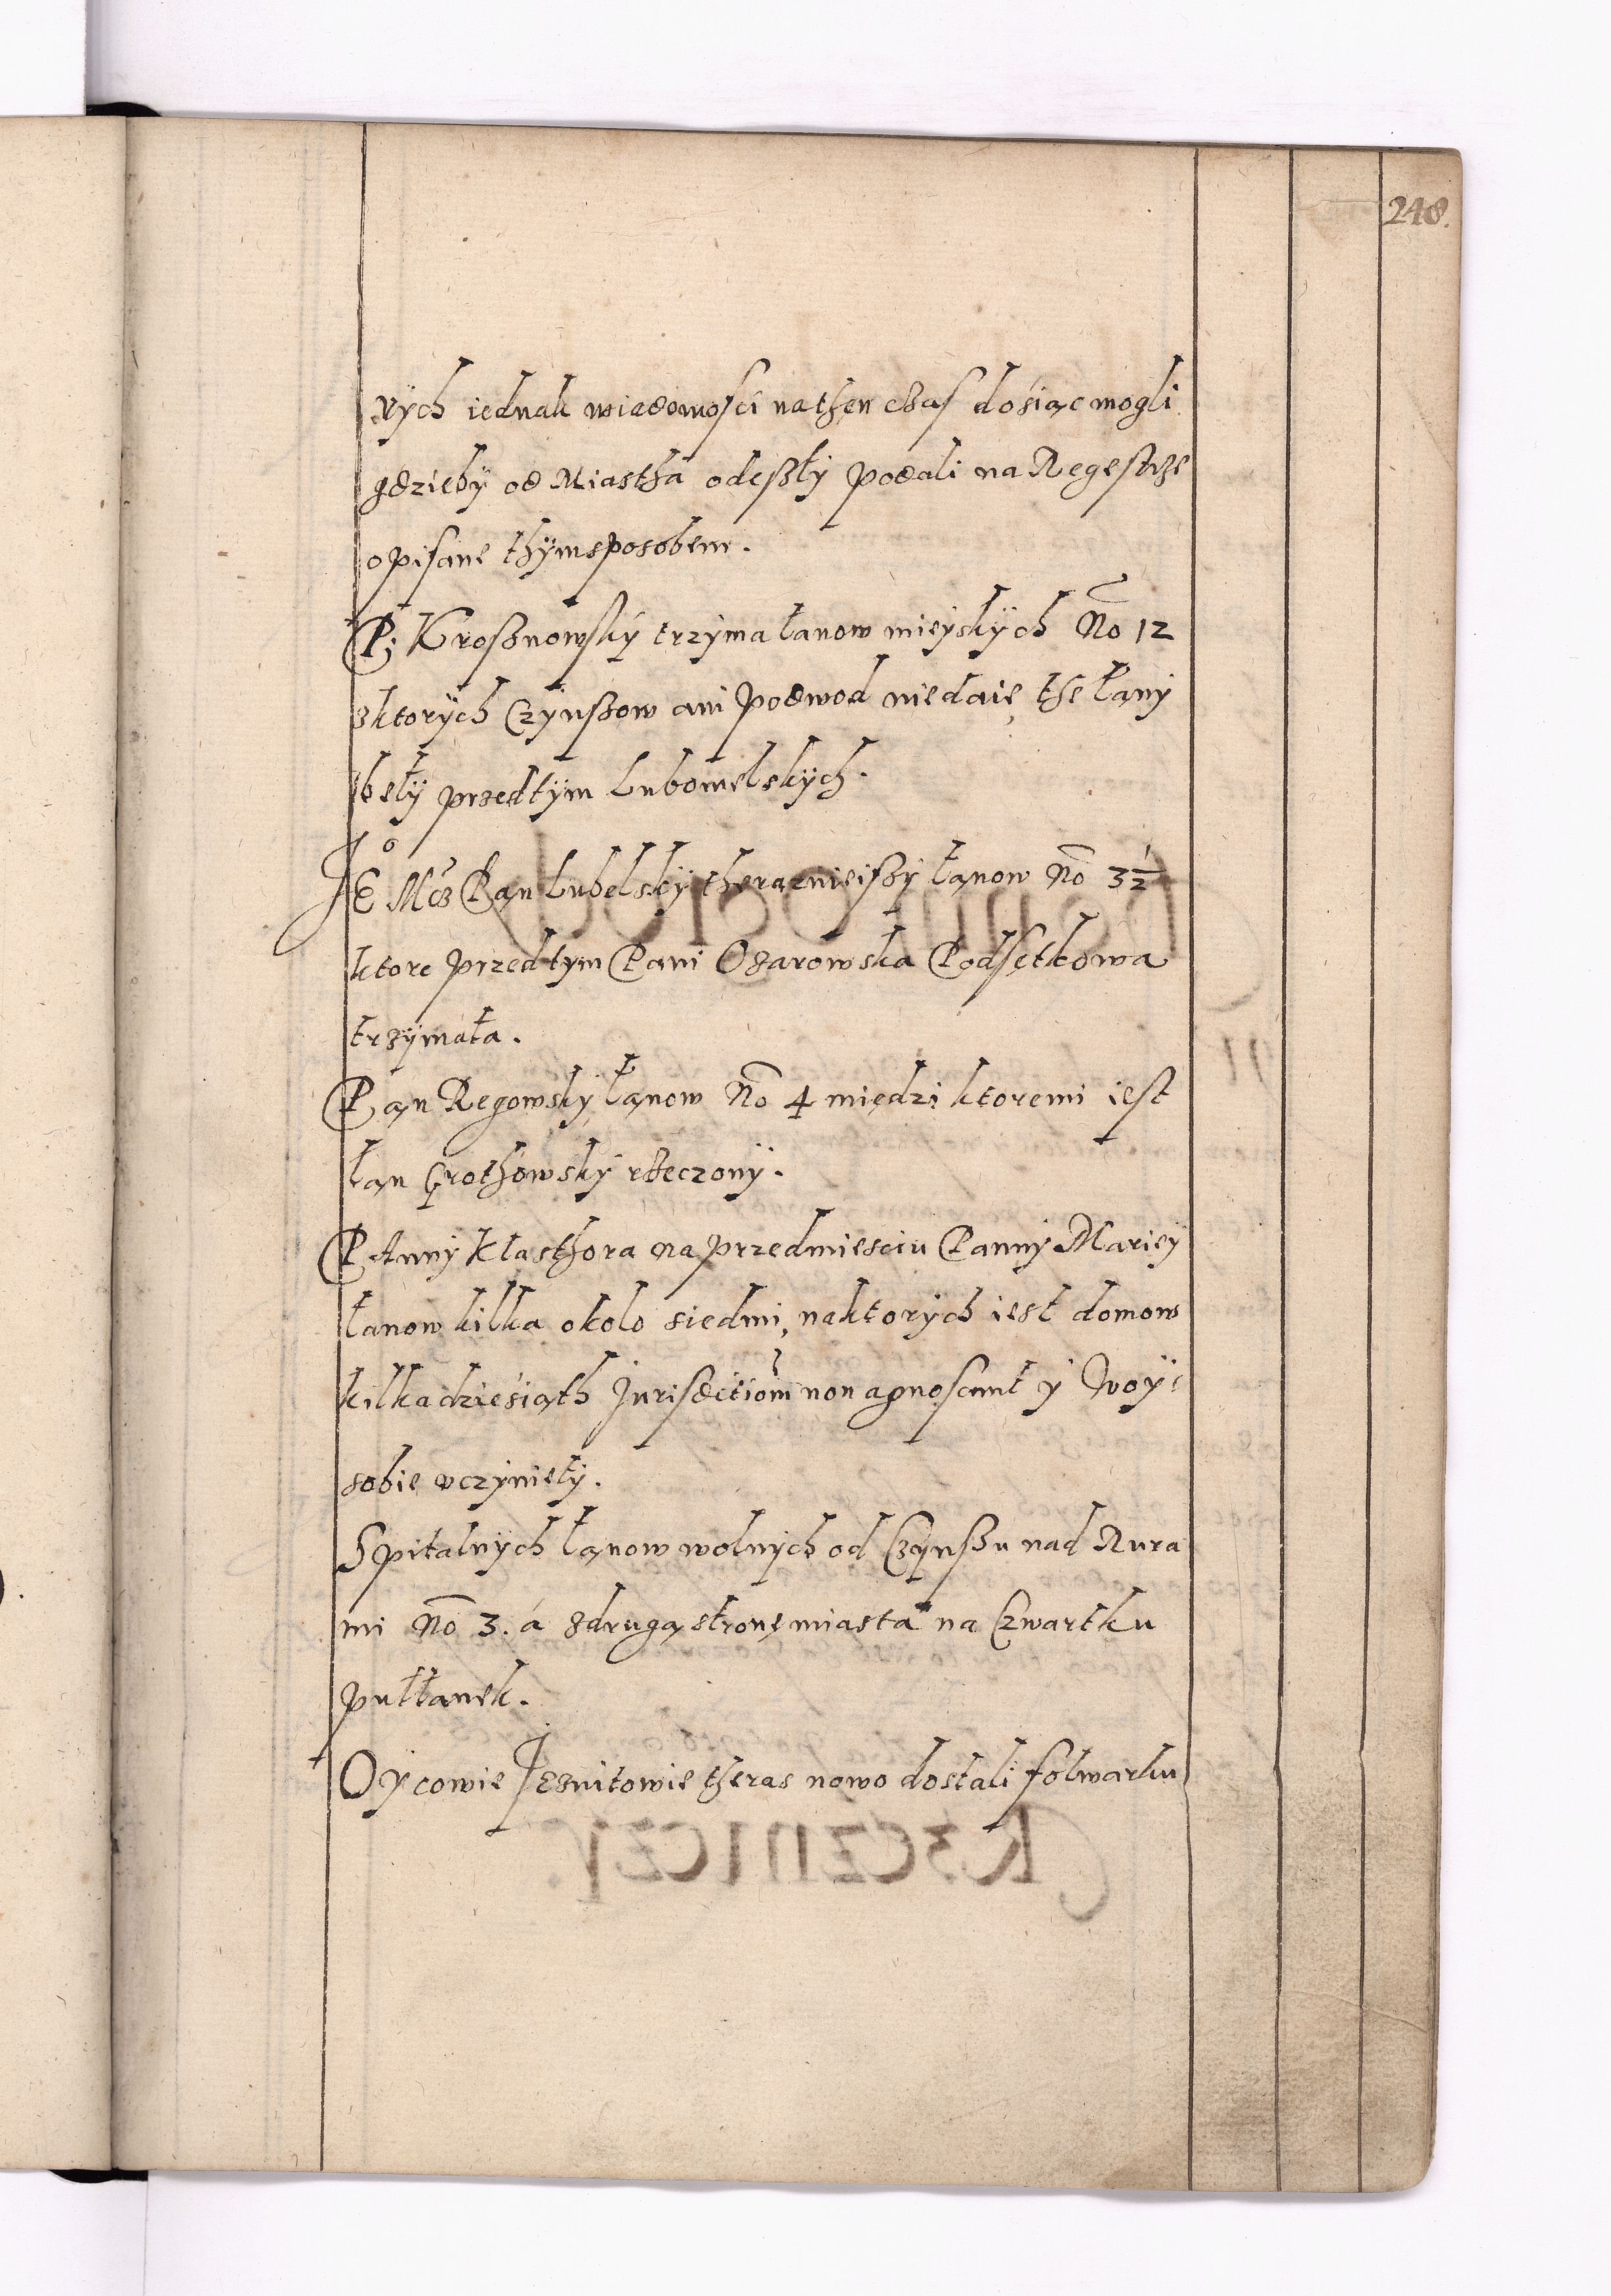 248.
rÿch iednak wiadomosci nathen czas dosiąc mogli
gdzieby od Miastha odeszły podali na Regestrze
opisane thÿm sposobem.
P: Krosznowsky trzyma łanow mieyskÿch No 12
zktorÿch Czÿnszow ani podwod niedaie, the łany
beły przedtÿm Lubomelskych.
JEo Mcz Pan Lubelskÿ theraznieiszÿ łanow No 3 1/2
ktore przedtym Pani Ozarowska Podsętkowa
trzÿmała.
Pan Regowsky łanow No 4 międzi ktoremi iest
łan Grothowsky rzeczonÿ.
PAnny Klasthora na przedmiesciu Panny Mariey
łanow kilka okolo siedmi, naktorych iest domow
kilkadziesiąth Jurisdictiom non agnoscunt y Woÿ:
sobie vczynieły.
Spitalnÿch łanow wolnych od Czÿnszu nad Rura
mi No 3. á zdrugą stronę miasta na Czwartku
pułłanek.
Oycowie Jezuitowie theras nowo dostali folwarku